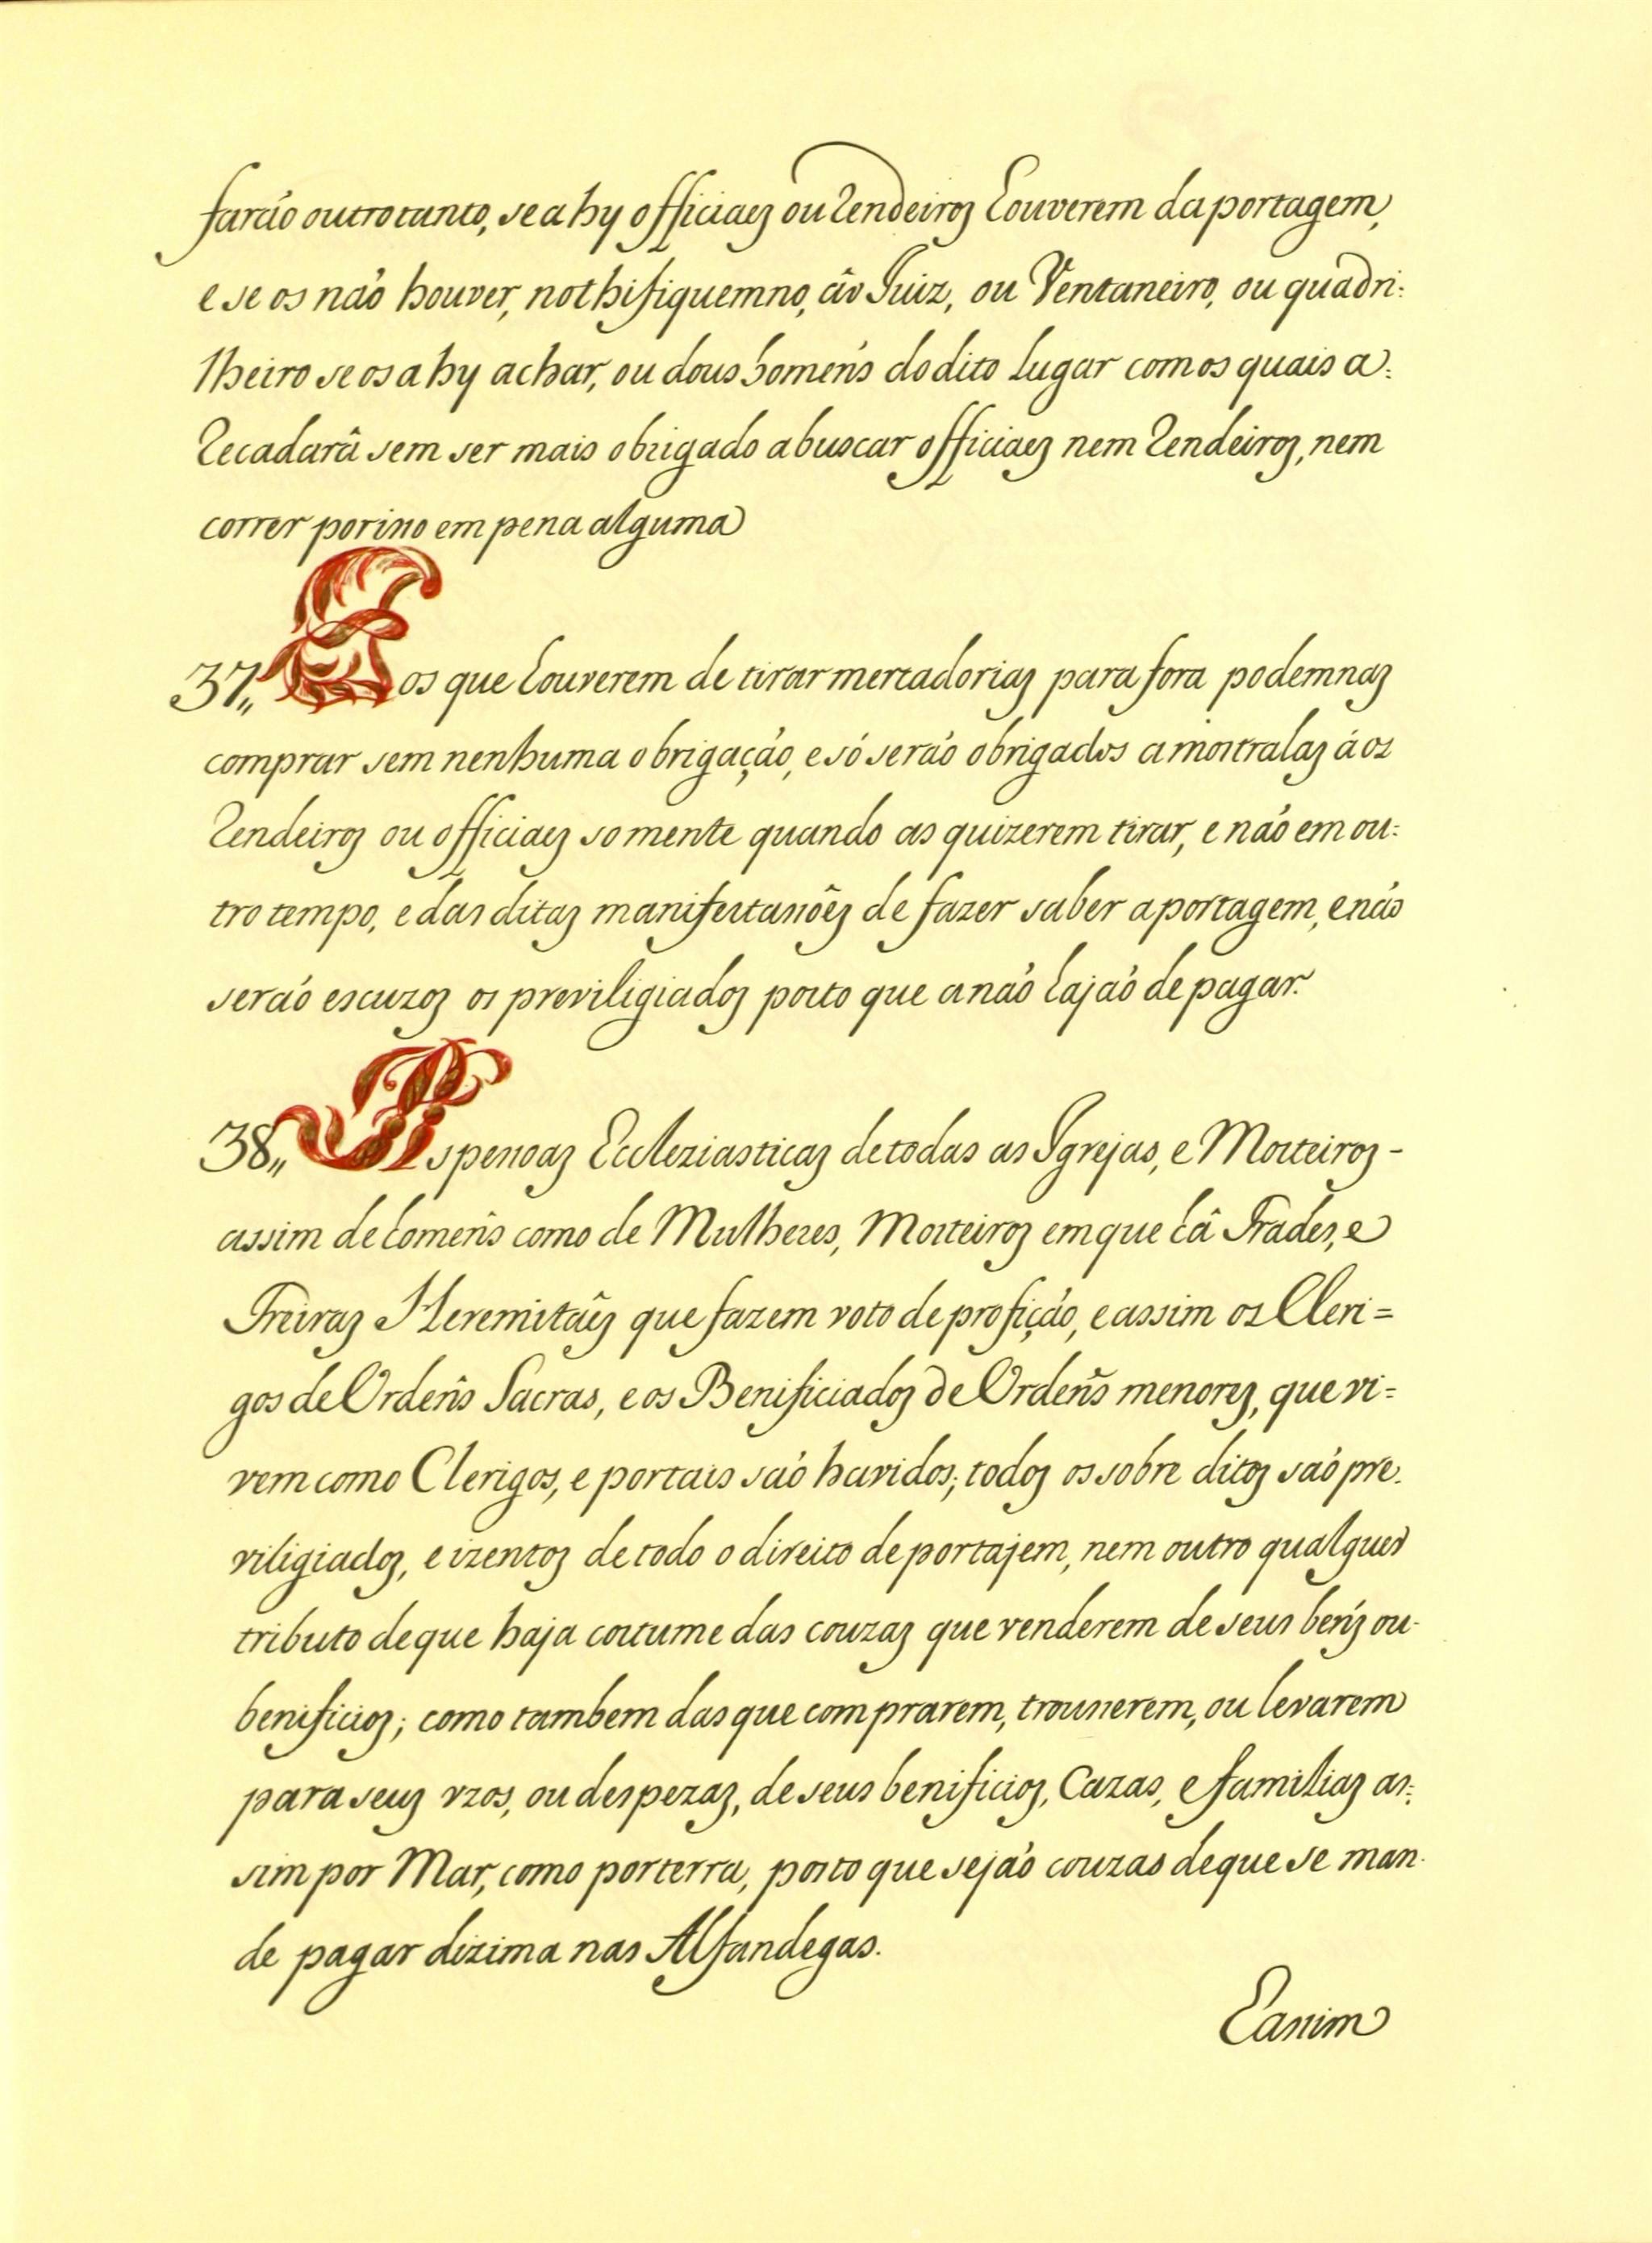 farão outro tanto, se ahy officiaes ou Rendeiros houverem da portagem,
e se os não houver, nothifiquemno, âo Juiz, ou Ventaneiro, ou quadri:
lheiro se os ahy achar, ou dous homeñs do dito Lugar com os quais a:
Recadarâ sem ser mais obrigado a buscar officiaes nem Rendeiros, nem
correr por isso em pena alguma
37,, E os que houverem de tirar mercadorias para fora podemnas
comprar sem nenhuma obrigação, e só serão obrigados a mostralas áos
Rendeiros ou officiaes somente quando as quizerem tirar, e não em ou:
tro tempo, e das ditas manifestasoês de fazer saber a portagem, e não
serão escuzos os previligiados posto que a não hajaõ de pagar.
38,, As pessoas Eccleziasticas de todas as Igrejas, e Mosteiros -
assim de homeñs como de Mulheres, Mosteiros em que hâ Frades, e
Freiras Heremitaês que fazem voto de profição, e assim os Cleri=
gos de Ordeñs Sacras, e os Benificiados de Ordeñs menores, que vi=
vem como Clerigos, e por tais saõ havidos; todos os sobre ditos saõ pre.
viligiados, e izentos de todo o direito de portajem, nem outro qualquer
tributo de que haja costume das couzas que venderem de seus beñs ou
benificios; como tambem das que comprarem, trouxerem, ou levarem
para seus vzos, ou despezas, de seus benificios, Cazas, e familias as:
sim por Mar, como por terra, posto que sejaõ couzas de que se man.
de pagar dizima nas Alfandegas.
E assim